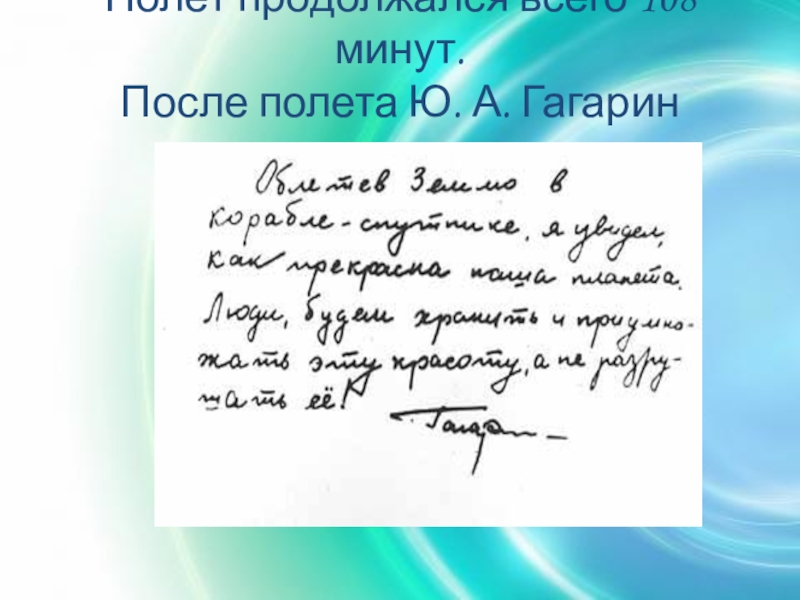 Полет продолжался всего 108
минут.
После полета Ю. А. Гагарин
Облетев Землю в
корабле-спутнике, я увидел,
как прекрасна наша планета.
Люди, будем хранить и приумно-
жать эту красоту, а не разру-
шать её!
Гагарин